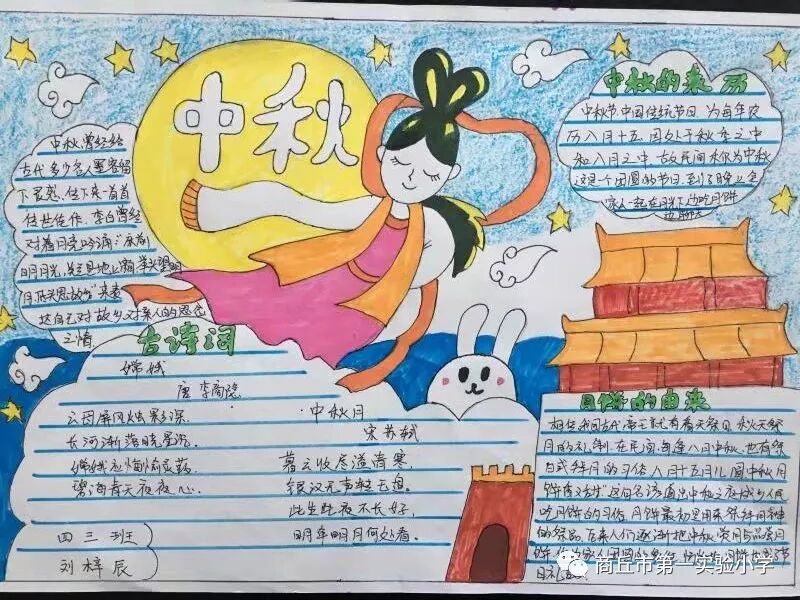 中秋
中秋,曾经给
古代多少名人墨客留
下灵感,住下来一首首
传世佳作,李白曾经
对着月亮吟诵:"床前
明月光,疑是地上霜,举头望明
月,低头思故乡"来表
达自己对故乡,对亲人的思念
之情
中秋的来历
中秋节,中国传统节日,为每年农
历八月十五,因处于秋季之中
和八月之中,故民间称为中秋
这是一个团圆的节日,到了晚上会
家人一起在月光下边吃月饼
边聊天
古诗词
嫦娥
唐 李商隐
云母屏风烛影深,
长河渐落晓星沉。
嫦娥应悔偷灵药,
碧海青天夜夜心。
中秋月
宋 苏轼
暮云收尽溢清寒,
银汉无声转玉盘。
此生此夜不长好,
明年明月何处看。
四三班
刘梓辰
月饼的由来
相传我国古代,帝王就有春天祭日,秋天祭
月的礼制,在民间,每逢八月中秋,也有祭
月的习俗,八月十五月儿圆,中秋月
饼香又甜,这句名谚道出中秋之夜城乡人民
吃月饼的习俗,月饼最初是用来祭拜月神
的祭品,后来人们逐渐把中秋赏月与品尝月
饼
商丘市第一实验小学